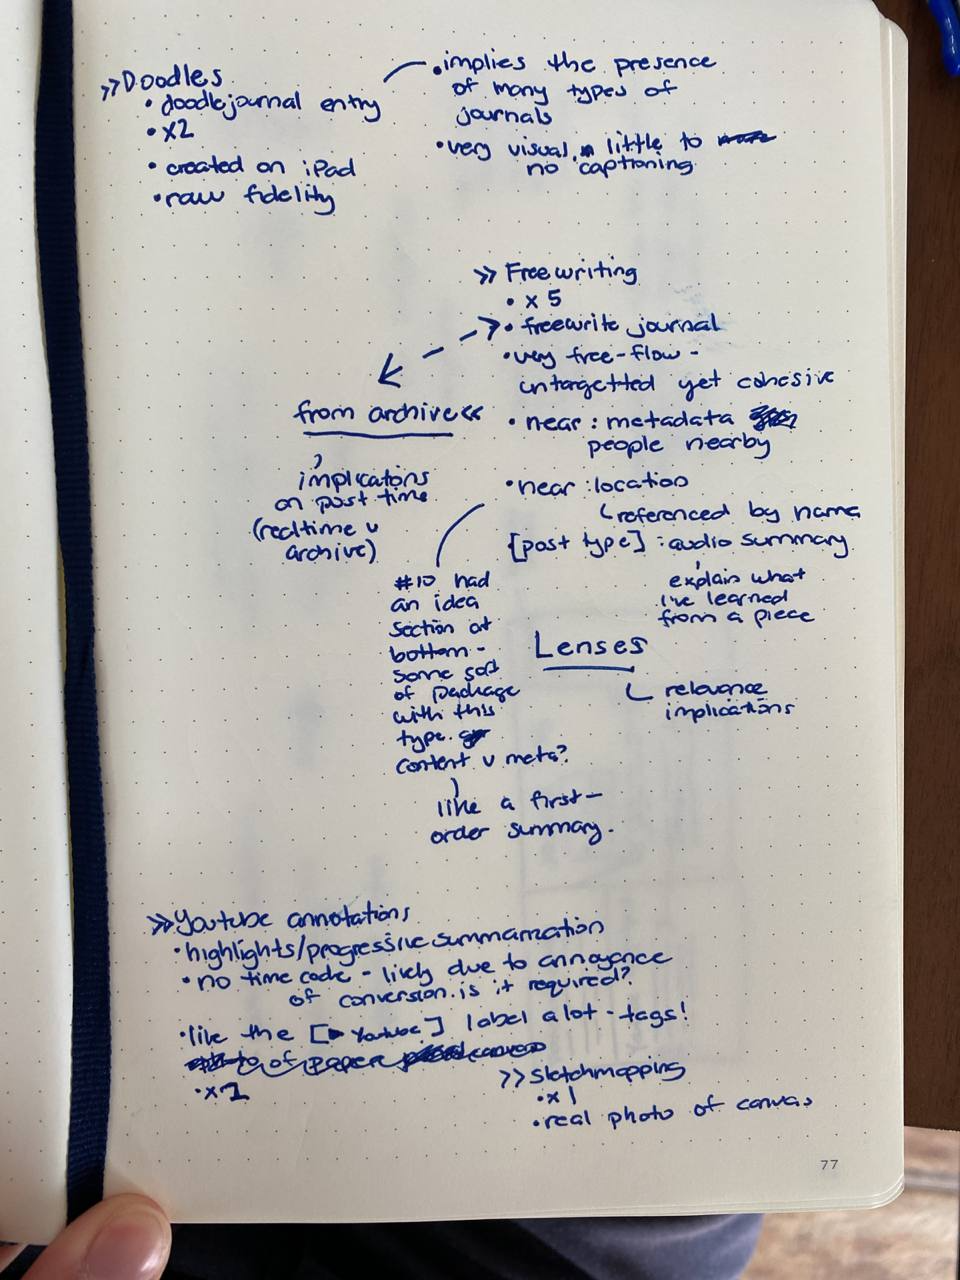 »Doodles
• doodlejournal entry
• x2
• created on iPad
• raw fidelity
• implies the presence
of many types of
journals
• very visual, little to
no captioning
» Freewriting
• x 5
• freewrite journal
• very free-flow -
untargetted yet cohesive
• near : metadata
people nearby
• near : location
referenced by name
[post type] : audio summary
explain what
I've learned
from a piece
from archive «
implications
on post time
(realtime v
archive)
#10 had
an idea
section at
bottom -
some sort
of package
with this
type
content v meta?
like a first-
order summary.
Lenses
relevance
implications
» Youtube annotations
• highlights/progressive summarization
• no time code - likely due to annoyance
of conversion. is it required?
• like the [▶ Youtube] label alot - tags!
of paper
• x
» Sketchmapping
• x 1
• real photo of canvas
77